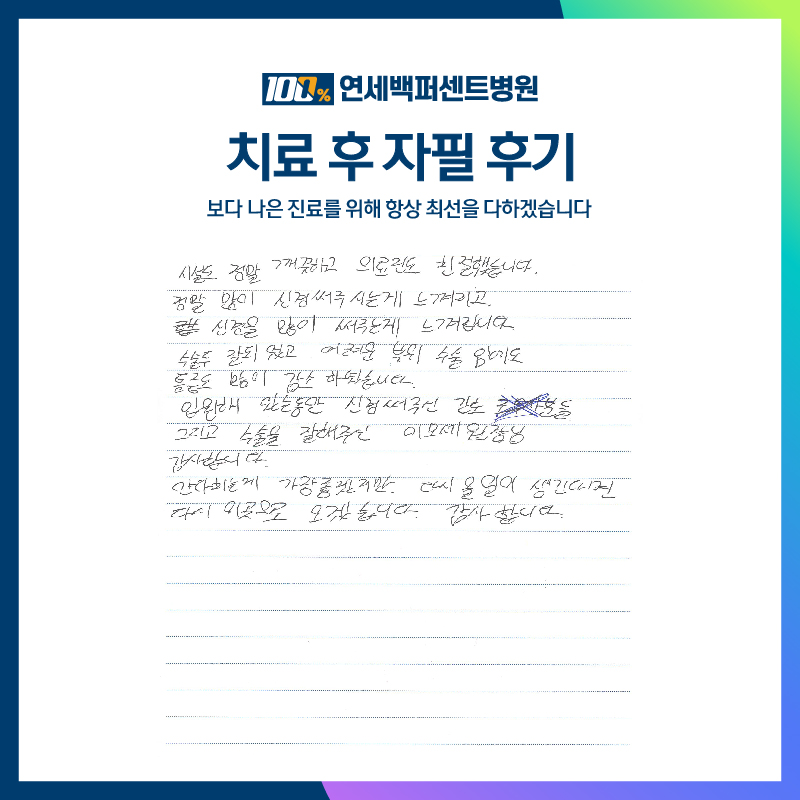 100% 연세백퍼센트병원
치료 후 자필 후기
보다 나은 진료를 위해 항상 최선을 다하겠습니다
시설도 정말 깨끗하고 의료진도 친절했습니다.
정말 많이 신경써주시는게 느껴지고.
신경을 많이 써주는게 느껴집니다
수술도 잘되었고 어려운 부위 수술 였지만
통증도 많이 감소 하였습니다.
입원해 있는동안 신경써주신 간호
그리고 수술을 잘해주신 이모세 원장님
감사합니다.
안아픈게 가장좋겠지만. 다시 올일이 생긴다면
다시 이곳으로 오겠습니다. 감사합니다.